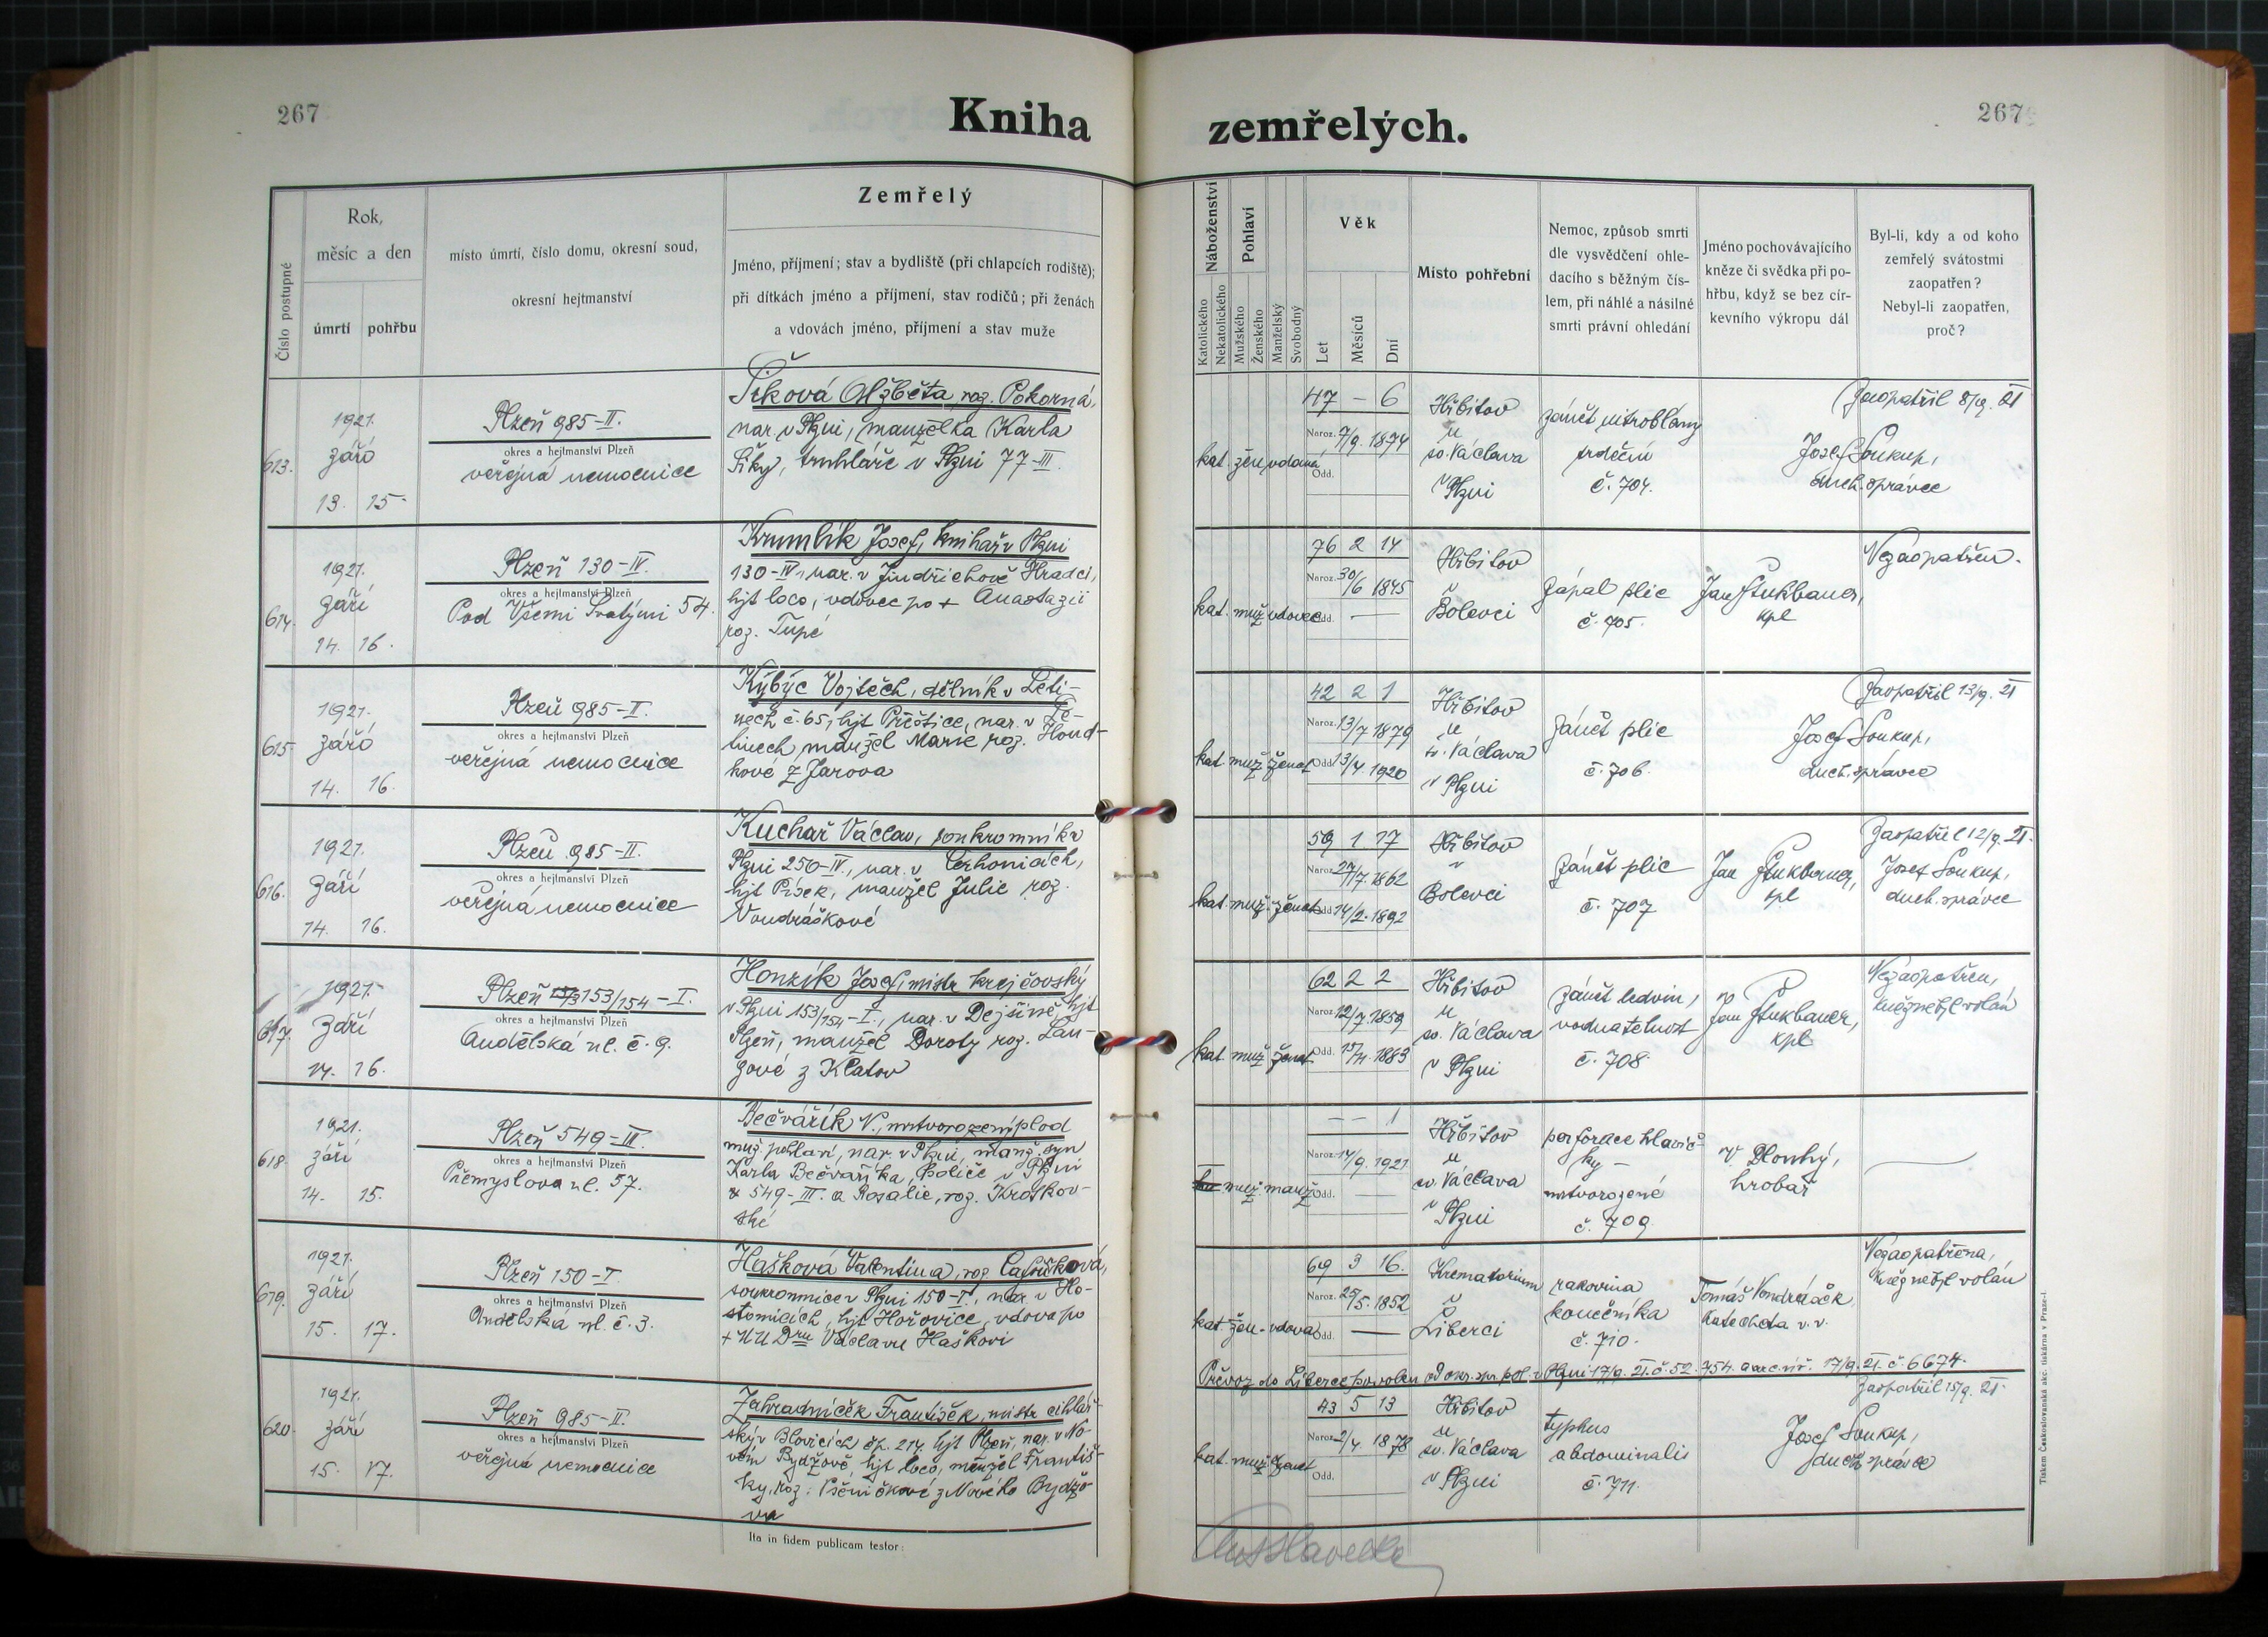 267
267
Kniha zemřelých.
Číslo postupné
Rok,
měsíc a den
úmrtí pohřbu
místo úmrtí, číslo domu, okresní soud,
okresní hejtmanství
Zemřelý
Jméno, příjmení; stav a bydliště (při chlapcích rodiště);
při dítkách jméno a příjmení, stav rodičů; při ženách
a vdovách jméno, příjmení a stav muže
Náboženství
Katolického
Nekatolického
Pohlaví
Mužského
Ženského
Manželský
Svobodný
Věk
Let
Měsíců
Dní
Místo pohřební
Nemoc, způsob smrti
dle vysvědčení ohle-
dacího s běžným čís-
lem, při náhlé a násilné
smrti právní ohledání
Jméno pochovávajícího
kněze či svědka při po-
hřbu, když se bez cír-
kevního výkropu dál
Byl-li, kdy a od koho
zemřelý svátostmi
zaopatřen?
Nebyl-li zaopatřen,
proč?
613.
1921.
září
13. 15.
Plzeň 985-II.
okres a hejtmanství Plzeň
veřejná nemocnice
Šiková Alžběta, roz. Pokorná,
nar. v Plzni, manželka Karla
Šiky, truhláře v Plzni 77-III.
kat. žen. vdova
47 – 6
Naroz. 7/9. 1874
Odd.
Hřbitov
u
sv. Václava
v Plzni
zánět nitroblány
srdeční
č. 704.
Zaopatřil 8/9. 21
Josef Soukup,
duch. správce
614.
1921.
září
14. 16.
Plzeň 130-IV.
okres a hejtmanství Plzeň
Pod Všemi Svatými 54.
Krumlík Josef, knihař v Plzni
130-IV., nar. v Jindřichově Hradci,
hjt loco, vdovec po + Anastazii
roz. Tupé
kat. muž. vdovec
76 2 14
Naroz. 30/6 1845
Odd. —
Hřbitov
v
Bolevci
Zápal plic
č. 705.
Jan Štukbauer,
kpl
Nezaopatřen.
615
1921.
září
14. 16.
Plzeň 985-II.
okres a hejtmanství Plzeň
veřejná nemocnice
Kybýc Vojtěch, dělník v Leti-
nech č. 65, hjt Přeštice, nar. v Le-
tinech, manžel Marie roz. Houd-
kové z Jarova
kat. muž. ženat
42 2 1
Naroz. 13/7 1879
Odd. 13/4. 1920
Hřbitov
u
sv. Václava
v Plzni
Zánět plic
č. 706.
Zaopatřil 13/9. 21
Josef Soukup,
duch. správce
616.
1921.
září
14. 16.
Plzeň 985-II.
okres a hejtmanství Plzeň
veřejná nemocnice
Kuchař Václav, soukromník v
Plzni 250-IV., nar. v Čerhonicích,
hjt Písek, manžel Julie roz.
Vondráškové
kat. muž. ženat
59 1 17
Naroz. 27/7. 1862
Odd. 14/2. 1892
Hřbitov
v
Bolevci
Zánět plic
č. 707
Jan Štukbauer,
kpl
Zaopatřil 12/9. 21.
Josef Soukup,
duch. správce
617.
1921.
září
14. 16.
Plzeň 153/154-I.
okres a hejtmanství Plzeň
Andělská ul. č. 9.
Honzík Josef, mistr krejčovský
v Plzni 153/154-I., nar. v Dejšině, hjt
Plzeň, manžel Doroty roz. Lan-
gové z Klatov
kat. muž. ženat
62 2 2
Naroz. 12/7. 1859
Odd. 1883
Hřbitov
u
sv. Václava
v Plzni
zánět ledvin,
vodnatelnost
č. 708.
Jan Štukbauer,
kpl
Nezaopatřen,
kněz nebyl volán
618.
1921.
září
14. 15.
Plzeň 549-III.
okres a hejtmanství Plzeň
Přemyslova ul. 57.
Bečvářík N., mrtvorozený plod
muž. pohlaví, nar. v Plzni, manž. syn
Karla Bečvaříka, v Plzni
549-III. a Rosalie, roz. Kroskov-
ské
muž. manž.
– – 1
Naroz. 14/9. 1921
Odd. —
Hřbitov
u
sv. Václava
v Plzni
perforace hlavič-
ky –
mrtvorozené
č. 709.
V. Dlouhý,
hrobař
619.
1921.
září
15. 17.
Plzeň 150-I.
okres a hejtmanství Plzeň
Andělská ul. č. 3.
Hašková Valentina, roz.
soukromnice v Plzni 150-I., nar. v Ho-
stomicích, hjt Hořovice, vdova po
+ MUDru Václavu Haškovi
kat. žen. vdova
69 3 16.
Naroz. 29/5. 1852
Odd. —
Krematorium
v
Liberci
rakovina
konečníka
č. 710.
Tomáš Vondráček,
katecheta v. v.
Nezaopatřena,
kněz nebyl volán
Převoz do Liberce povolen Plzni 17/9. 21. č. 52.754. 17/9. 21. č. 6674.
620.
1921.
září
15. 17.
Plzeň 985-II.
okres a hejtmanství Plzeň
veřejná nemocnice
Zahradníček František, mistr cihlář-
ský v Blovicích čp. 214. hjt Plzeň, nar. v No-
vém Bydžově, hjt loco, manžel Františ-
ky, roz. Pšeničkové z Nového Bydžo-
va
kat. muž. ženat
43 5 13
Naroz. 2/4. 1878
Odd.
Hřbitov
u
sv. Václava
v Plzni
typhus
abdominalis
č. 711.
Zaopatřil 15/9. 21.
Josef Soukup,
duch. správce
Ita in fidem publicam testor:
Tiskem Československá akc. tiskárna v Praze-I